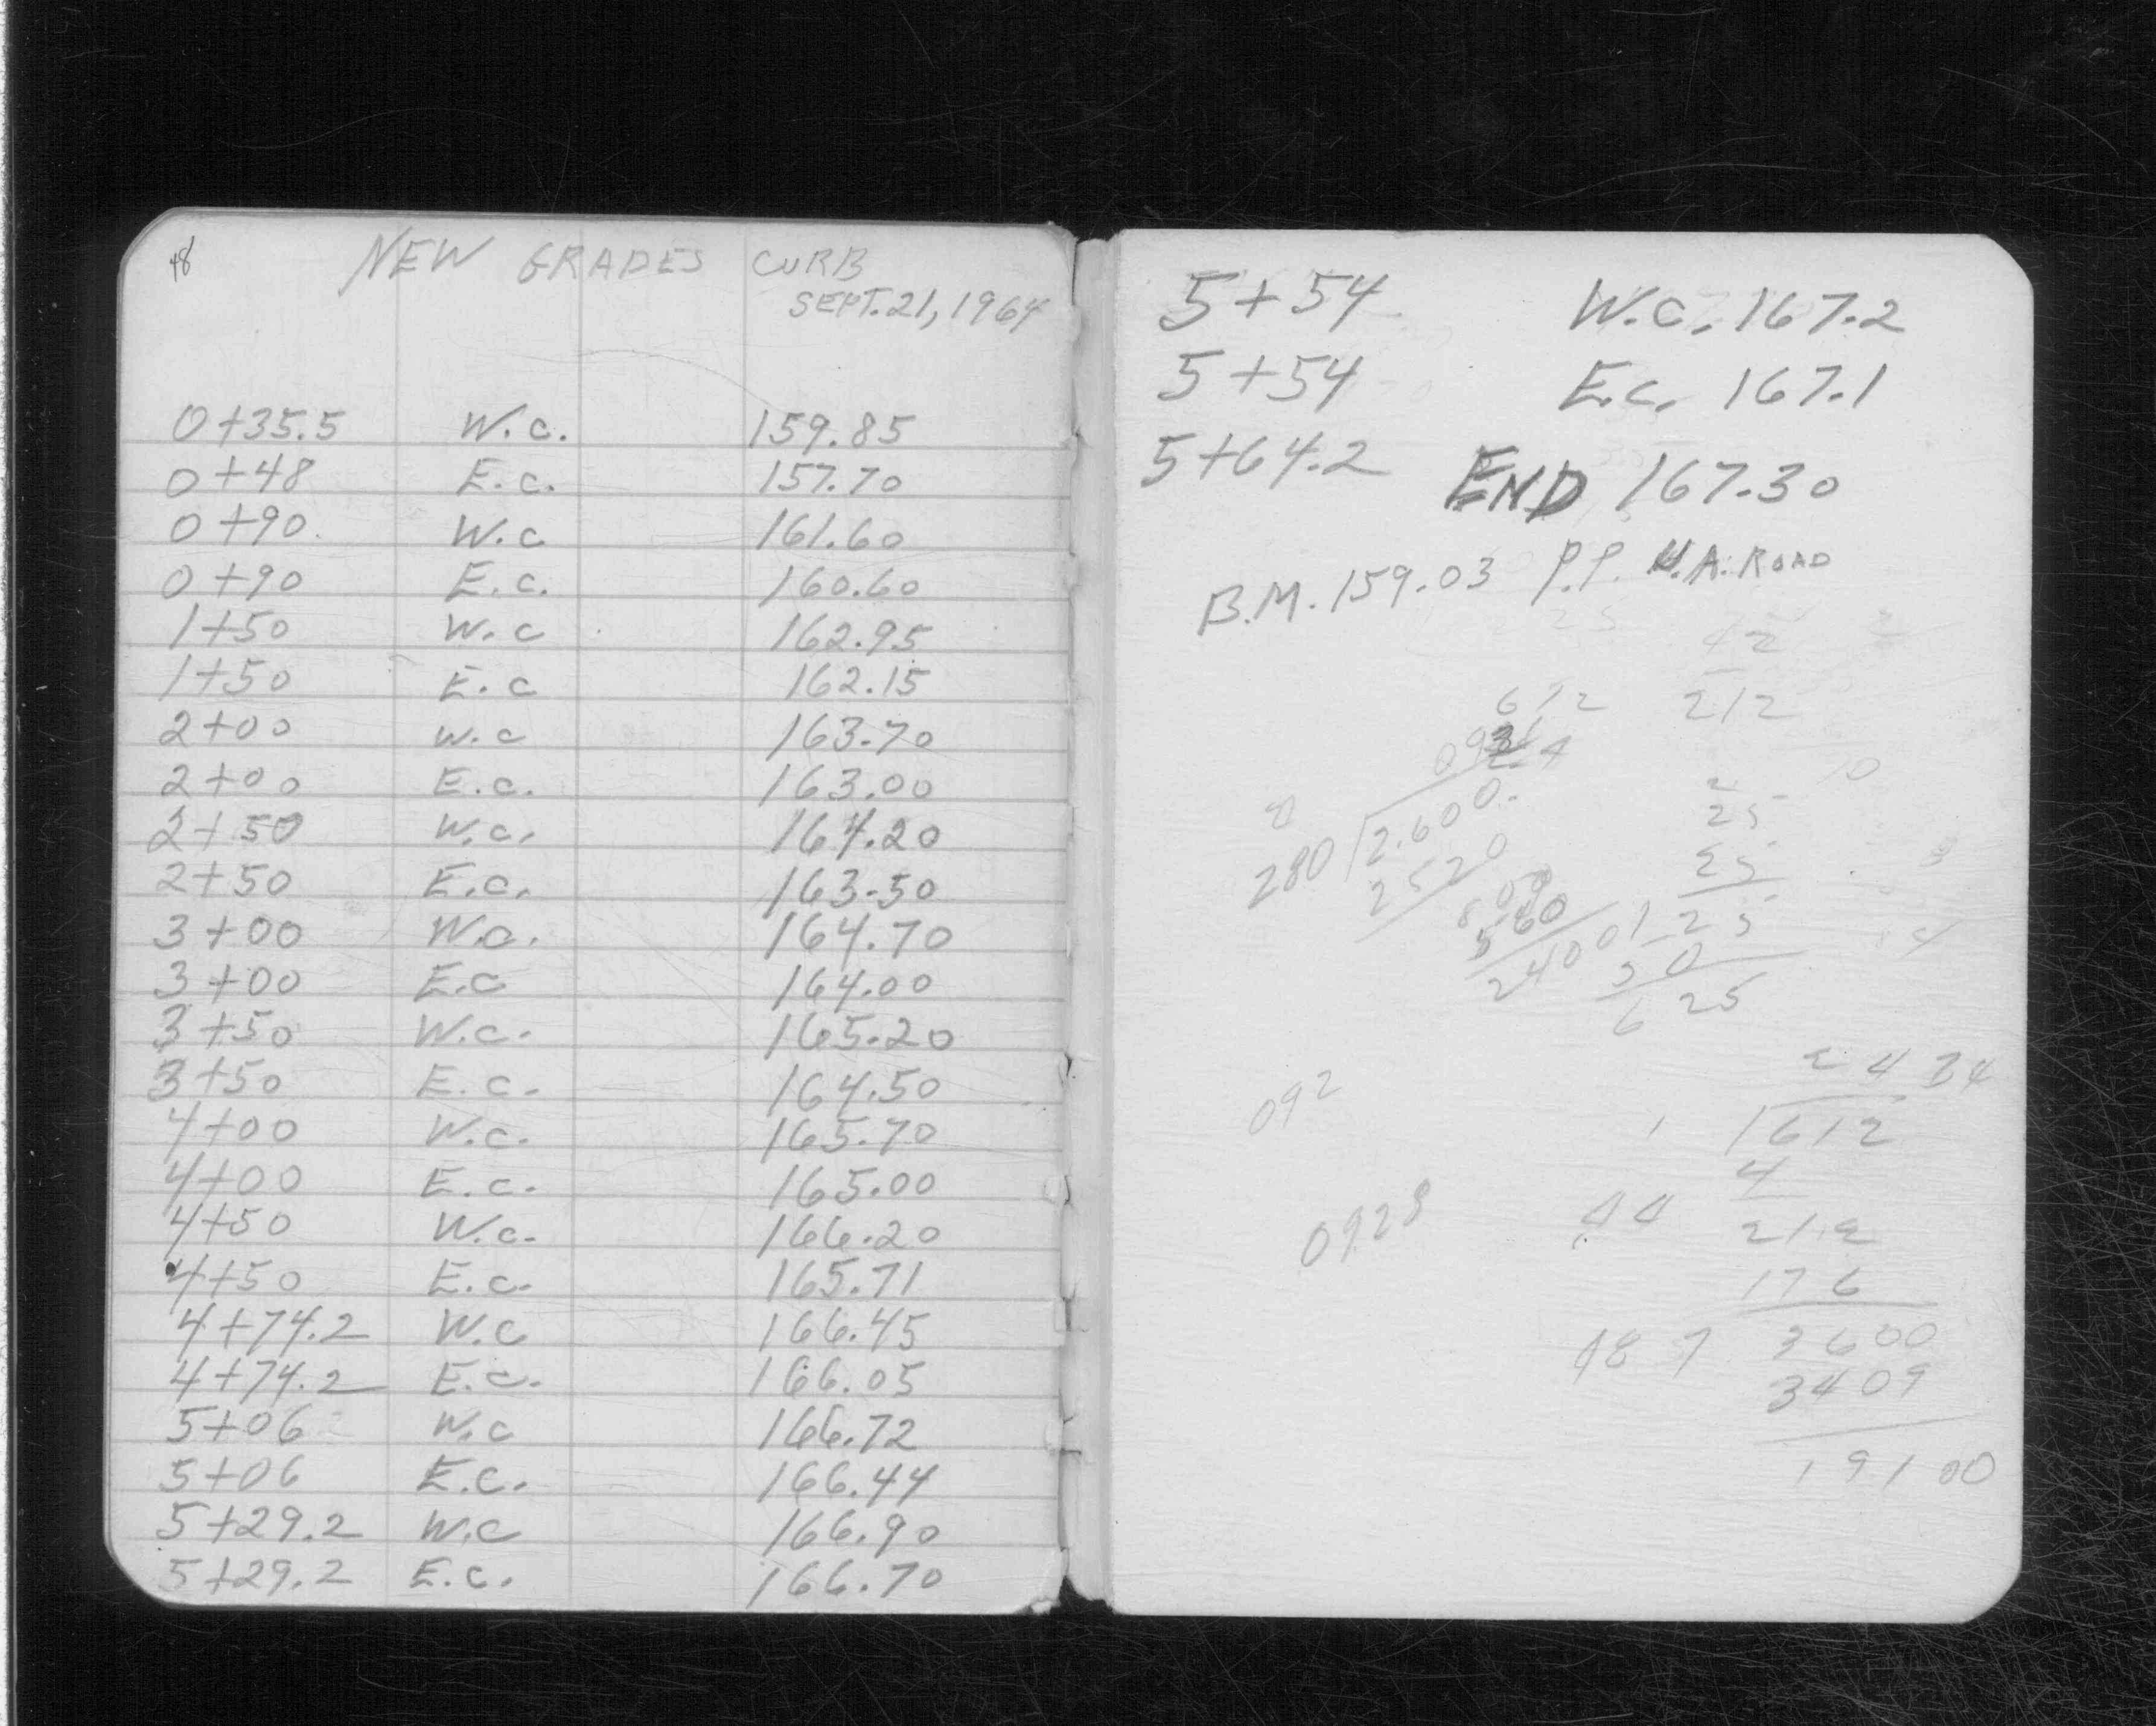 48 NEW GRADES CURB
SEPT. 21, 1964
0+35.5 W.C. 159.85
0+48 E.C. 157.70
0+90 W.C 161.60
0+90 E.C. 160.60
1+50 W.C 162.95
1+50 E.C 162.15
2+00 W.C 163.70
2+00 E.C. 163.00
2+50 W.C. 164.20
2+50 E.C. 163.50
3+00 W.C. 164.70
3+00 E.C 164.00
3+50 W.C. 165.20
3+50 E.C. 164.50
4+00 W.C. 165.70
4+00 E.C. 165.00
4+50 W.C. 166.20
4+50 E.C. 165.71
4+74.2 W.C 166.45
4+74.2 E.C. 166.05
5+06 W.C 166.72
5+06 E.C. 166.44
5+29.2 W.C 166.90
5+29.2 E.C. 166.70
5+54 W.C. 167.2
5+54 E.C. 167.1
5+64.2 END 167.30
B.M. 159.03 P.P. H.A. ROAD
42
612 212
10
25
280 2.600 0.
25
2520
560 125
2400 50
625
2 4 34
092 1612
4
0928 44 212
176
487 3600
3409
19100